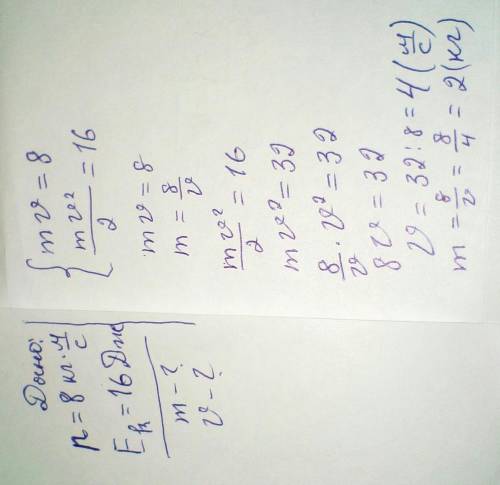 Дано:
p = 8 кг · м/с
Eк = 16 Дж
m - ?
v - ?
{ mv = 8
mv²/2 = 16
mv = 8
m = 8/v
mv²/2 = 16
mv² = 32
8/v · v² = 32
8v = 32
v = 32 : 8 = 4 (м/с)
m = 8/v = 8/4 = 2 (кг)